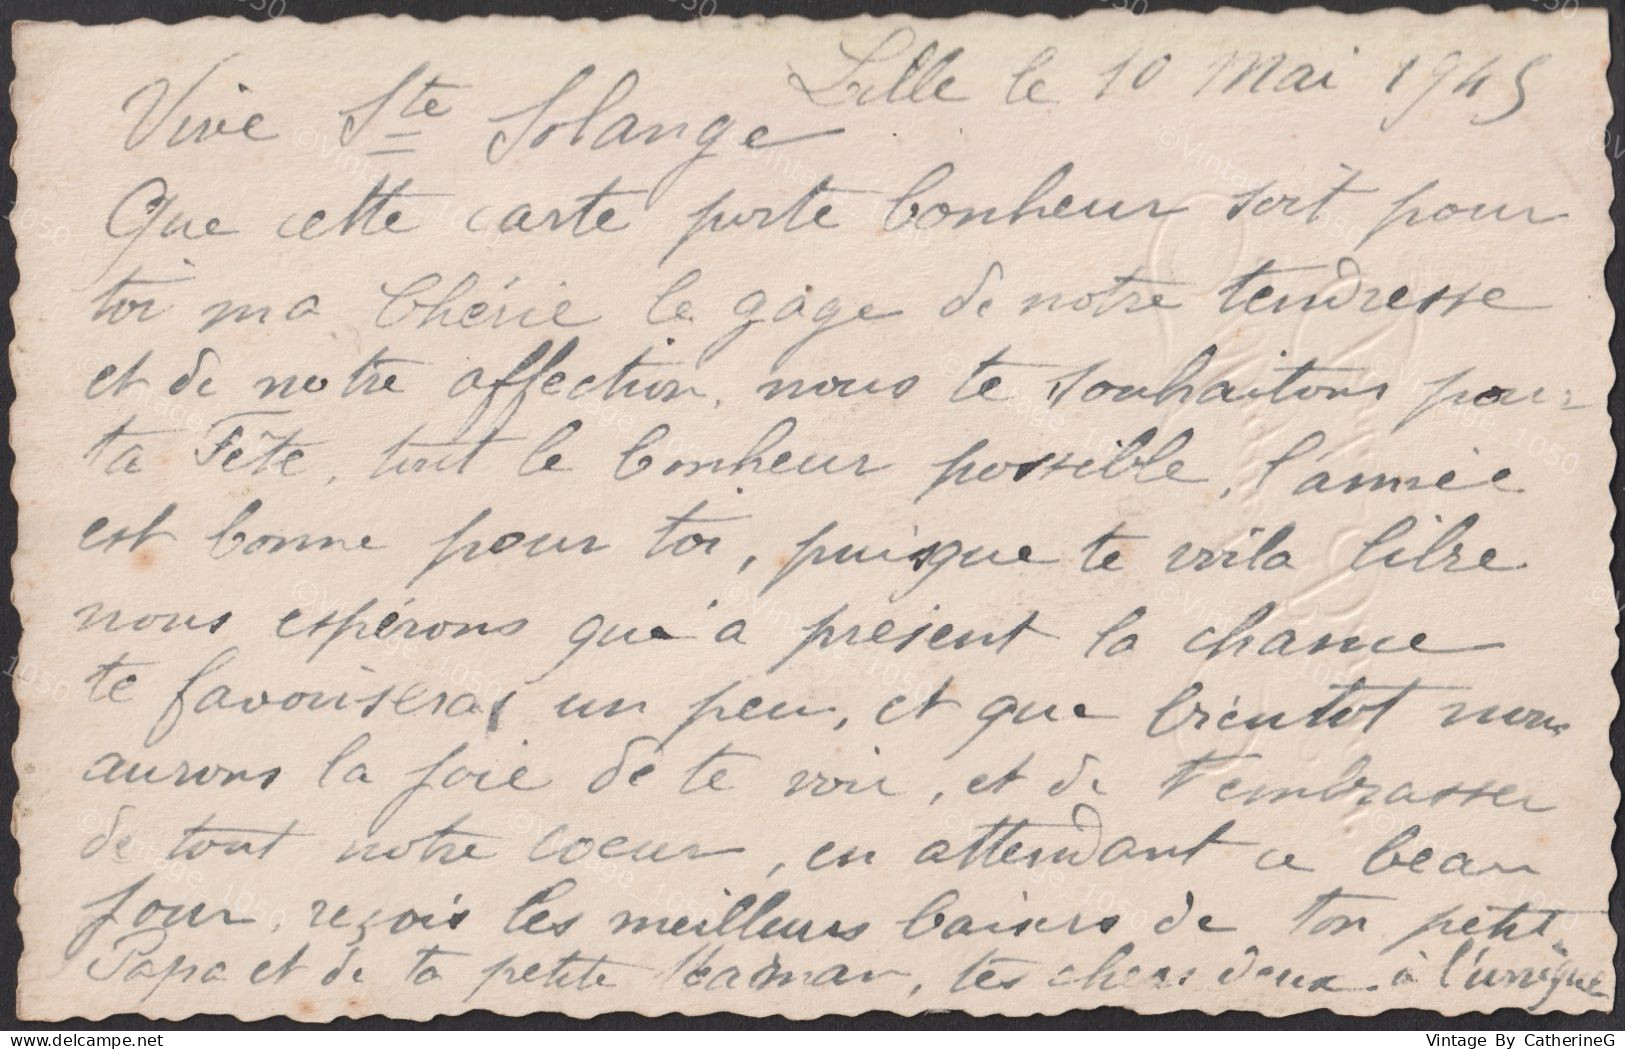 Lille le 10 Mai 1945
Vive Ste Solange
Que cette carte porte bonheur soit pour
toi ma Chérie le gage de notre tendresse
et de notre affection, nous te souhaitons pour
ta Fête, tout le bonheur possible, l'année
est bonne pour toi, puisque te voila libre
nous espérons qu'à présent la chance
te favoriseras un peu, et que bientot nous
aurons la joie de te voir, et de t'embrasser
de tout notre coeur, en attendant ce beau
jour, reçois les meilleurs baisers de ton petit
Papa et de ta petite Maman, tes chers deux à l'unique
delcampe.net
Vintage By CatherineG
©Vintage_1050